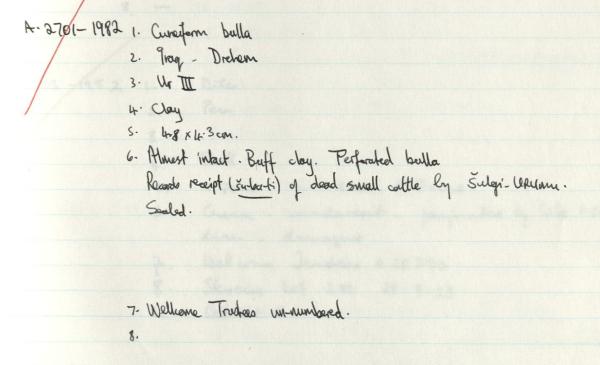 A.2701-1982 1. Cuneiform bulla
2. Iraq - Drehem
3. Ur III
4. Clay
5. 4.8 x 4.3 cm.
6. Almost intact. Buff clay. Perforated bulla
Records receipt (šu ba-ti) of dead small cattle by Šulgi-URUmu.
Sealed.
7. Wellcome Trustees un-numbered.
8.